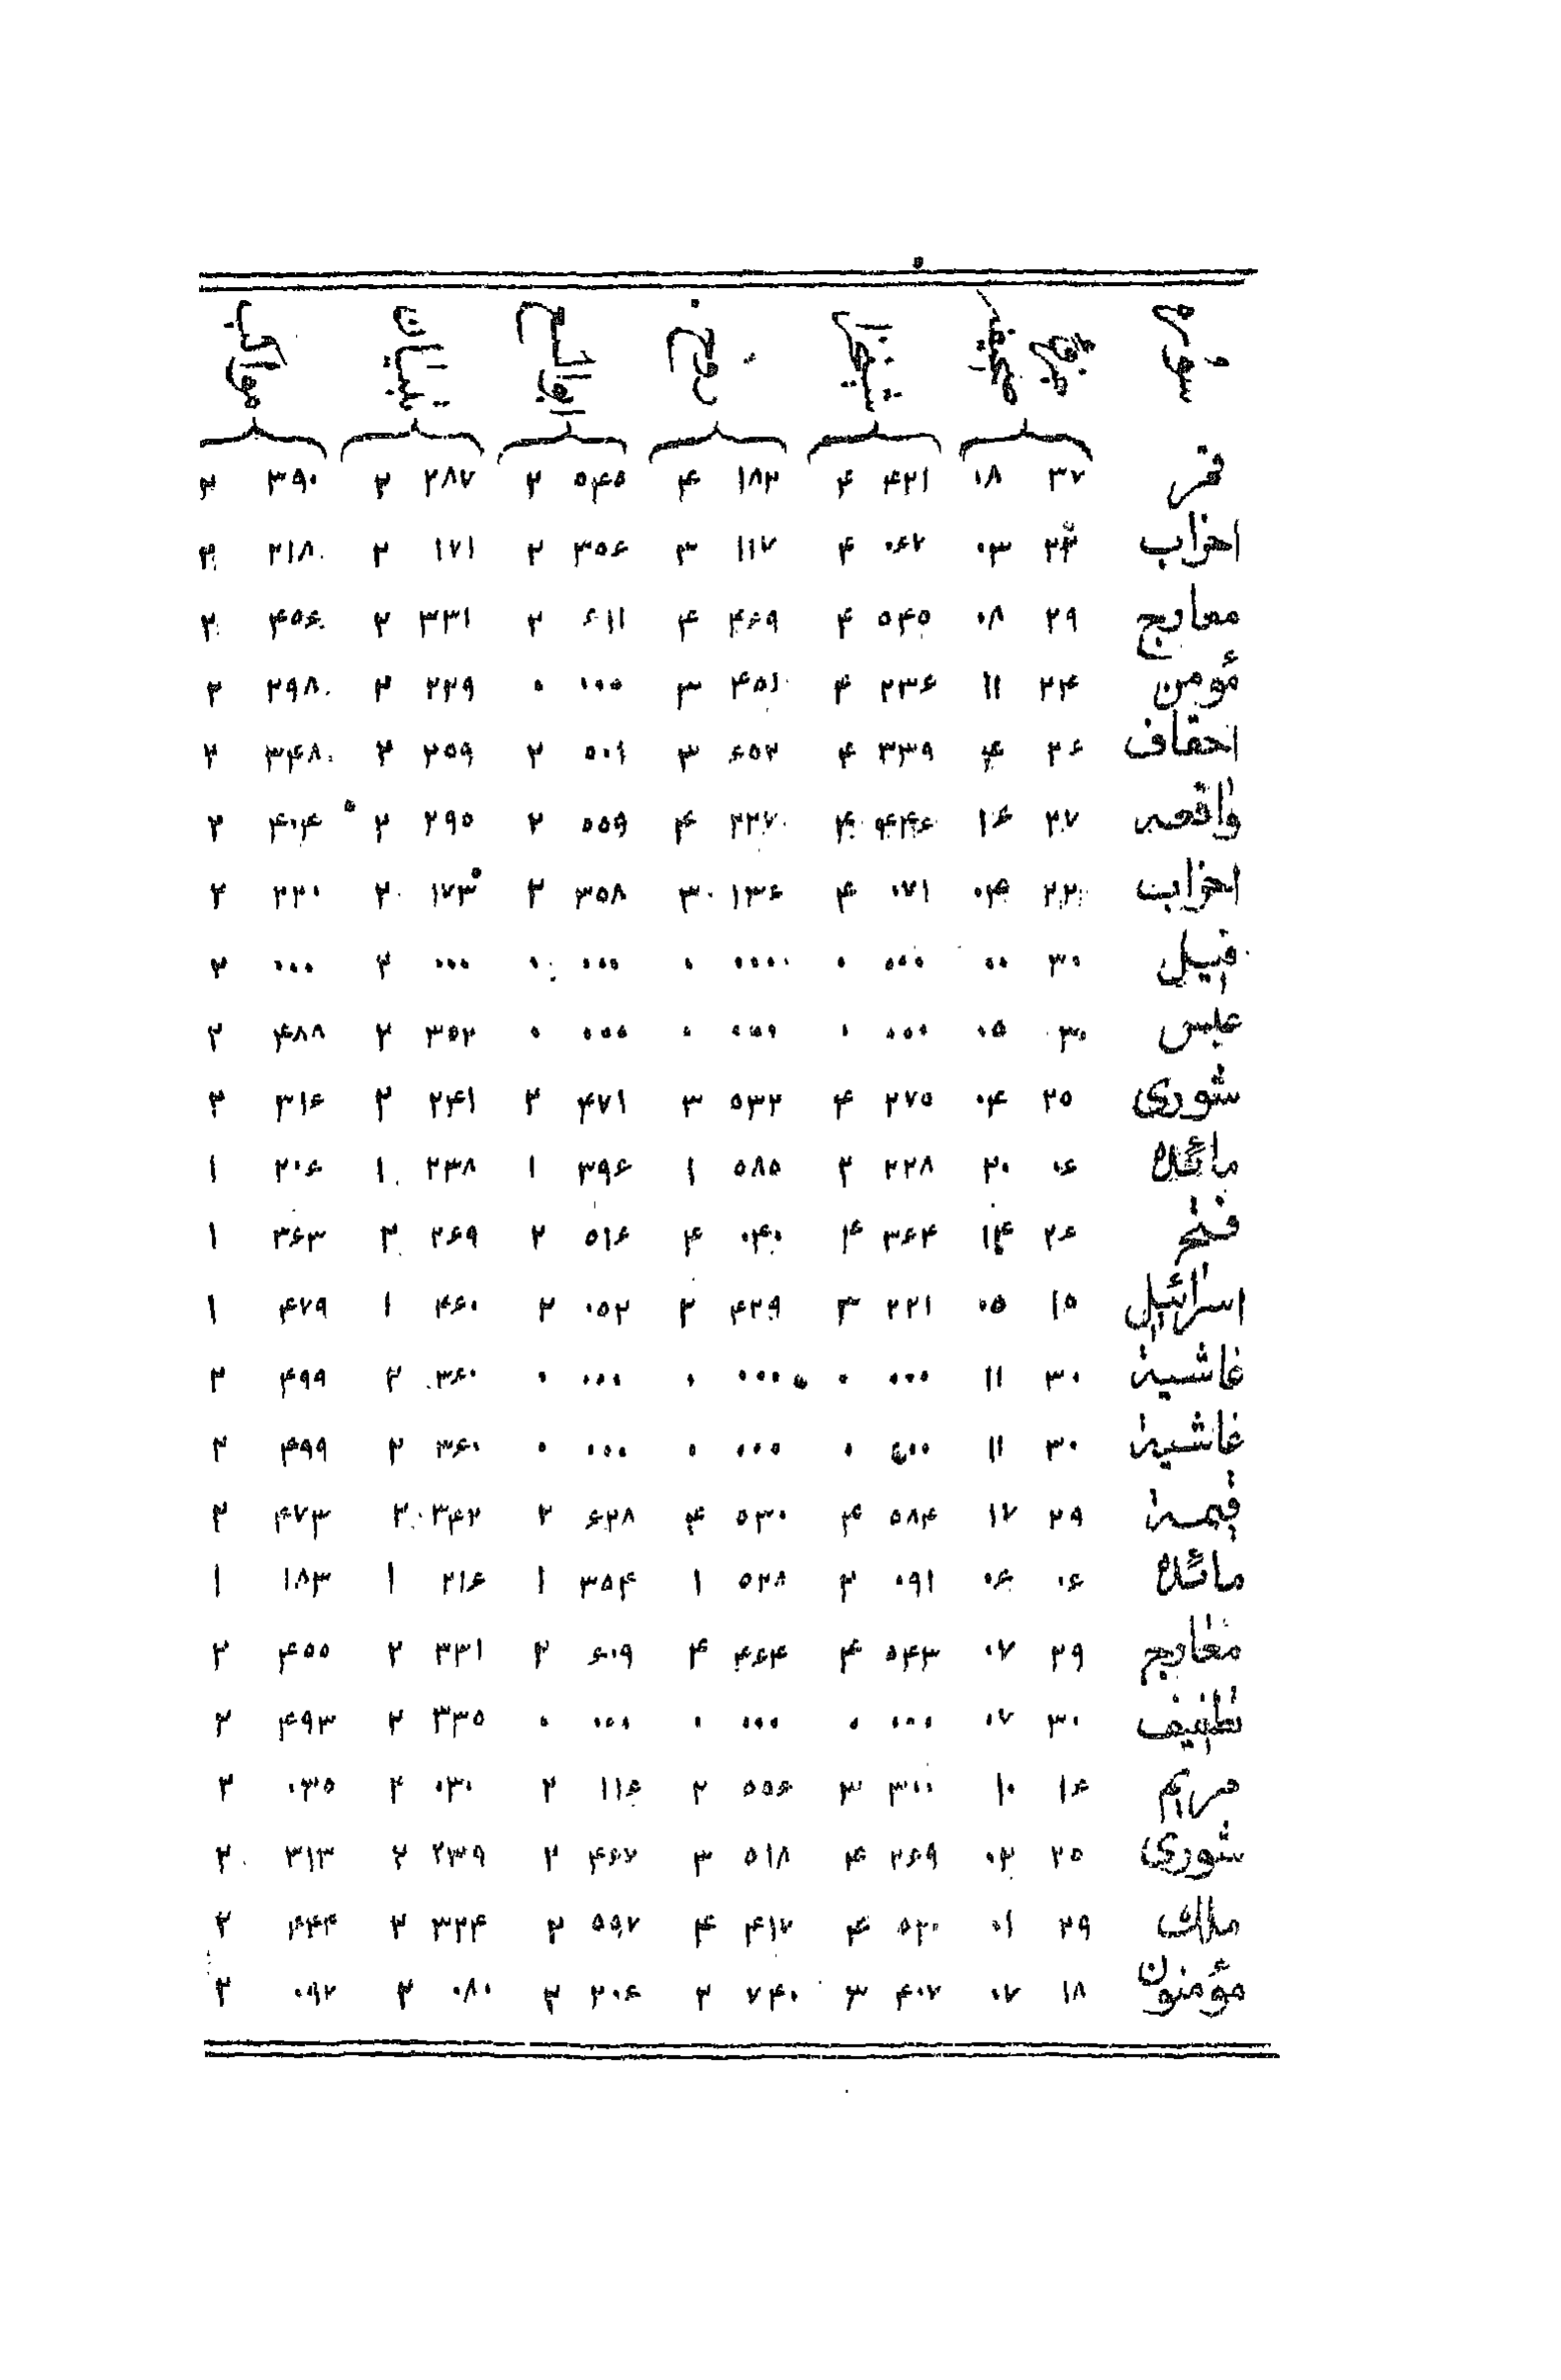 قمر ۳۷ ۰۸ ۴۲۱ ۴ ۱۸۲ ۴ ۵۴۵ ۲ ۲۸۷ ۲ ۳۹۰ ۲
احزاب ۰۳ ۰۶۷ ۴ ۱۱۷ ۳ ۳۵۶ ۲ ۱۷۱ ۲ ۲۱۸ ۲
معارج ۲۹ ۰۸ ۵۴۵ ۴ ۴۶۹ ۴ ۶۱۱ ۲ ۳۳۱ ۲ ۴۵۶ ۲
مؤمن ۲۴ ۱۱ ۲۳۶ ۴ ۴۵۱ ۳ ۰۰۰ ۰ ۲۲۹ ۲ ۲۹۸ ۲
احقاف ۲۶ ۴ ۳۳۹ ۴ ۶۵۲ ۳ ۵۰۱ ۲ ۲۵۹ ۲ ۳۴۸ ۲
واقعه ۲۷ ۱۶ ۴۴۶ ۴ ۲۲۷ ۴ ۵۵۹ ۲ ۲۹۵ ۲ ۴۰۴ ۲
احزاب ۲۲ ۰۴ ۰۷۱ ۴ ۱۳۶ ۳ ۳۵۸ ۲ ۱۷۳ ۲ ۲۲۰ ۲
فیل ۳۰ ۰۰ ۰۰۰ ۰ ۰۰۰۰ ۰ ۰۰۰ ۰ ۰۰۰ ۲ ۰۰۰ ۲
عبس ۳۰ ۰۵ ۰۰۰ ۰ ۰۰۰ ۰ ۰۰۰ ۰ ۳۵۲ ۲ ۴۸۸ ۲
شوری ۲۵ ۰۴ ۲۷۵ ۴ ۵۳۲ ۳ ۴۷۱ ۲ ۲۴۱ ۲ ۳۱۶ ۲
مائده ۰۶ ۲۰ ۲۲۸ ۲ ۵۸۵ ۱ ۳۹۶ ۱ ۲۳۸ ۱ ۲۰۶ ۱
فتح ۲۶ ۱۴ ۳۶۴ ۴ ۰۴۰ ۴ ۵۱۶ ۲ ۲۶۹ ۲ ۳۶۳ ۱
اسرائیل ۱۵ ۰۵ ۲۲۱ ۳ ۴۲۹ ۲ ۰۵۲ ۲ ۴۶۰ ۱ ۴۷۹ ۱
غاشیة ۳۰ ۱۱ ۰۰۰ ۰ ۰۰۰ ۰ ۰۰۰ ۰ ۳۶۰ ۲ ۴۹۹ ۲
غاشیة ۳۰ ۱۱ ۰۰ ۰ ۰۰۰ ۰ ۰۰۰ ۰ ۳۶۰ ۲ ۴۹۹ ۲
قیمة ۲۹ ۱۷ ۵۸۴ ۴ ۵۳۰ ۴ ۶۲۸ ۲ ۳۴۲ ۲ ۴۷۳ ۲
مائده ۰۶ ۰۶ ۰۹۱ ۲ ۵۲۸ ۱ ۳۵۴ ۱ ۲۱۶ ۱ ۱۸۳ ۱
معارج ۲۹ ۰۷ ۵۴۳ ۴ ۴۶۴ ۴ ۶۰۹ ۲ ۳۳۱ ۲ ۴۵۵ ۲
تطفیف ۳۰ ۰۷ ۰۰۰ ۰ ۰۰۰ ۰ ۰۰۰ ۰ ۳۳۵ ۲ ۴۹۳ ۲
مریم ۱۶ ۱۰ ۳۰۰ ۳ ۵۵۶ ۲ ۱۱۶ ۲ ۰۳۰ ۲ ۰۳۵ ۲
شوری ۲۵ ۰۲ ۲۶۹ ۴ ۵۱۸ ۳ ۴۶۷ ۲ ۲۳۹ ۲ ۳۱۳ ۲
ملك ۲۹ ۰۱ ۵۲۰ ۴ ۴۱۷ ۴ ۵۹۷ ۲ ۳۲۴ ۲ ۴۴۴ ۲
مؤمنون ۱۸ ۰۷ ۴۰۷ ۳ ۷۴۰ ۲ ۲۰۶ ۲ ۰۸۰ ۲ ۰۹۲ ۲